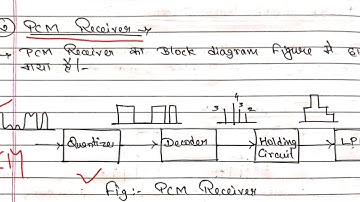 PCM Receiver :→
→ PCM Receiver का Block diagram Figure में
गया है।-
3 4 3 2
Quantizer Decoder Holding Circuit LP
Fig:- PCM Receiver